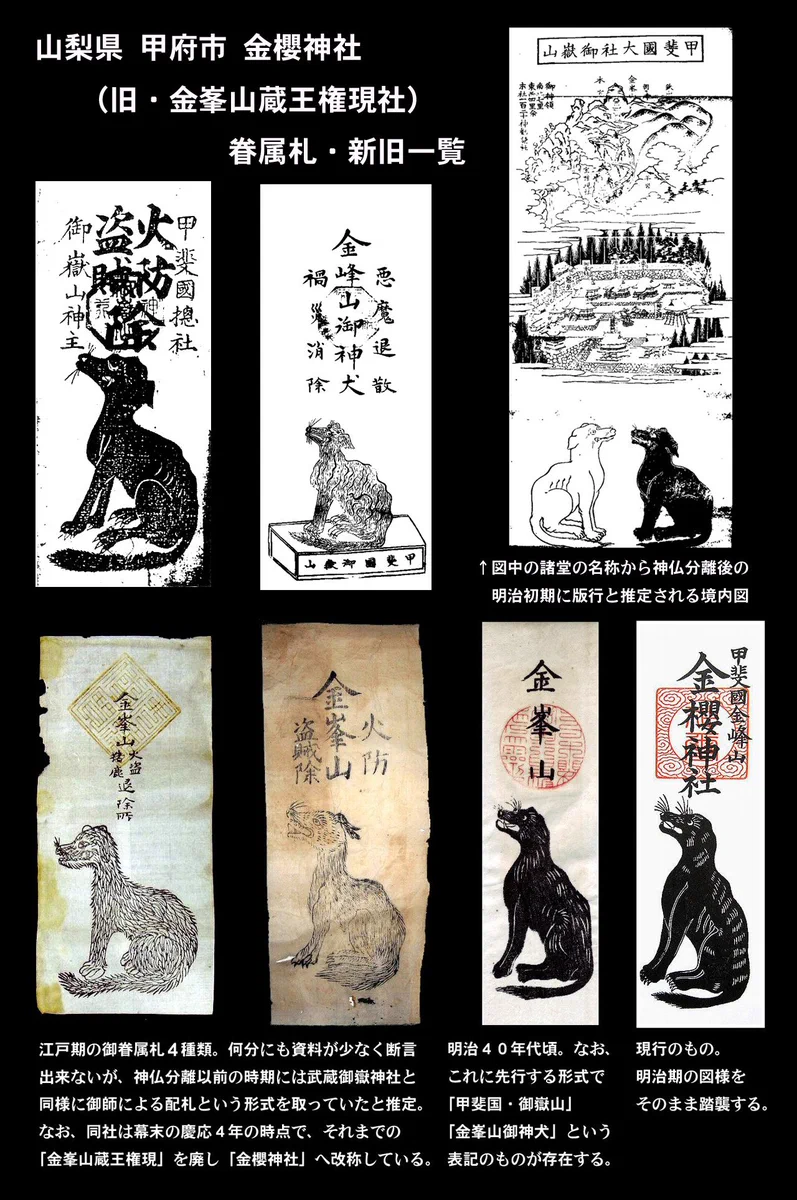 山梨県 甲府市 金櫻神社
（旧・金峯山蔵王権現社）
眷属札・新旧一覧
甲斐國總社
火防
盗賊
御嶽山神王
金峰山御神犬
悪魔退散
禍災消除
山嶽御國斐甲
山嶽御社大國斐甲
↑図中の諸堂の名称から神仏分離後の
明治初期に版行と推定される境内図
金峯山
火盗
退除所
金峯山
火防
盗賊除
金峯山
甲斐國金峰山
金櫻神社
江戸期の御眷属札４種類。何分にも資料が少なく断言
出来ないが、神仏分離以前の時期には武蔵御嶽神社と
同様に御師による配札という形式を取っていたと推定。
なお、同社は幕末の慶応４年の時点で、それまでの
「金峯山蔵王権現」を廃し「金櫻神社」へ改称している。
明治４０年代頃。なお、
これに先行する形式で
「甲斐国・御嶽山」
「金峯山御神犬」という
表記のものが存在する。
現行のもの。
明治期の図様を
そのまま踏襲する。